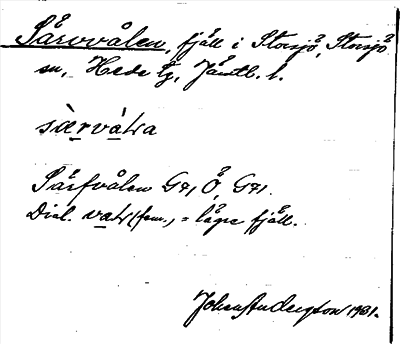 Särvvålen, fjäll i Storsjö, Storsjö
sn, Hede tg, Jämtl. l.
sàrvàlra
Särfvålen G71, Ö, G71.
Dial. valr (fem.) = lägre fjäll.
Johan Anderzson 1931.